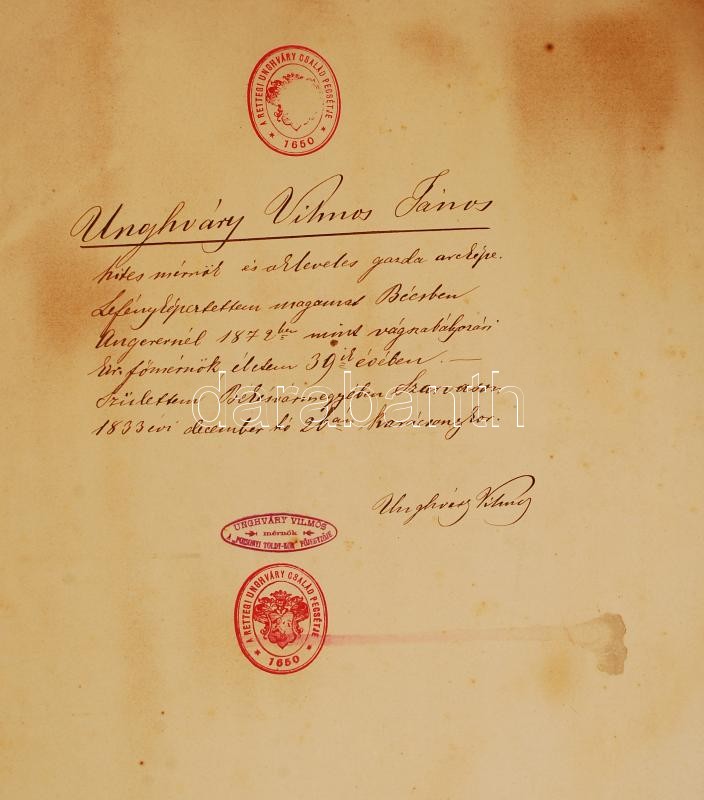 A RETTEGI UNGHVÁRY CSALÁD PECSÉTJE
* 1650 *
Unghváry Vilmos János
hites mérnök és okleveles gazda arcképe.
Lefényképeztettem magamat Bécsben
Angerernél 1872ben mint vágszabályozási
kir. főmérnök életem 39ik évében. —
Születtem Békésvármegyében Szarvason
1833 évi december hó 26án karácsonykor.
darabanth
Unghváry Vilmos
UNGHVÁRY VILMOS
mérnök
A „POZSONYI TOLDY-KÖR" FŐJEGYZŐJE
A RETTEGI UNGHVÁRY CSALÁD PECSÉTJE
* 1650 *